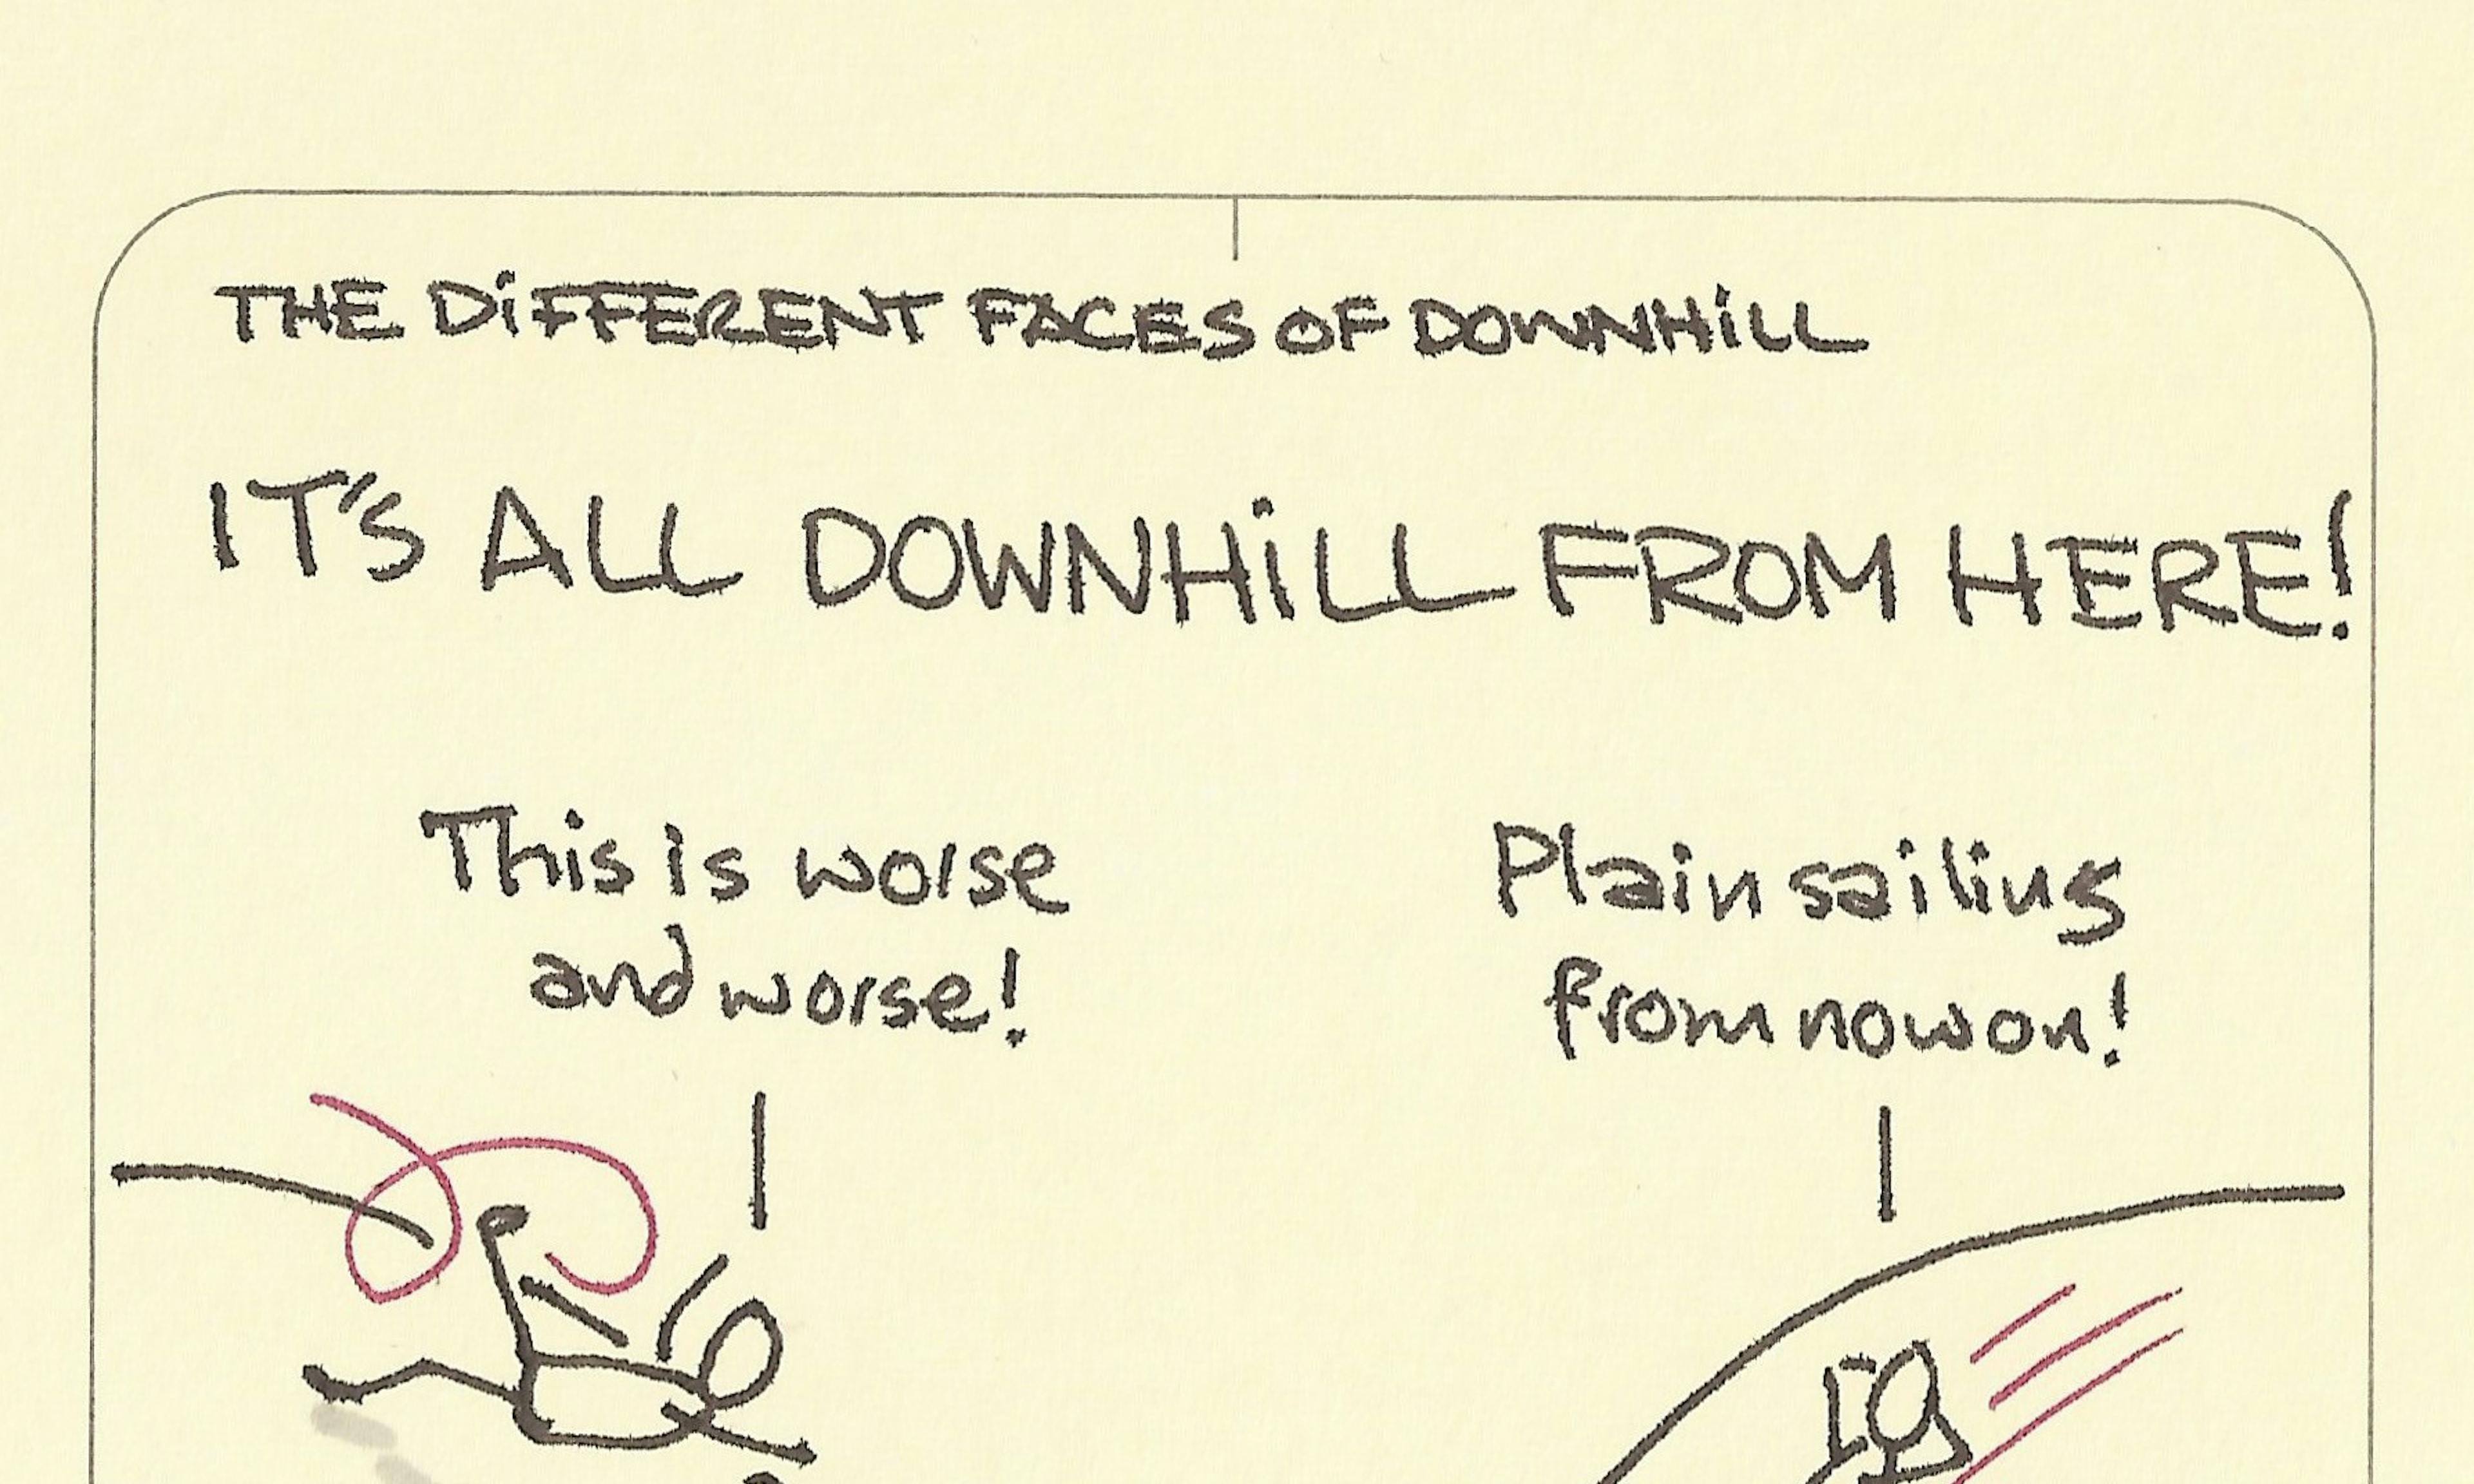 THE DiFFERENT FACES OF DOWNHiLL
IT'S ALL DOWNHiLL FROM HERE!
This is worse
and worse!
Plain sailing
from now on!